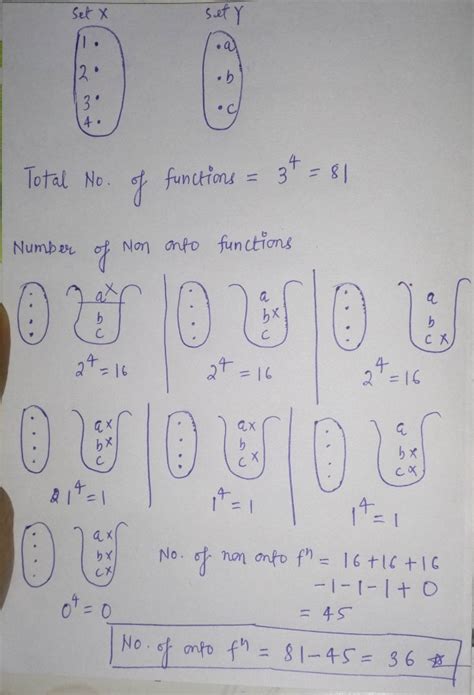 Set X Set Y
1. .a
2. .b
3. .c
4.
Total No. of functions = 3^4 = 81
Number of Non onto functions
a x a a
b b x b
c c c x
2^4 = 16 2^4 = 16 2^4 = 16
a x a x a
b x b b x
c c x c x
1^4 = 1 1^4 = 1 1^4 = 1
a x
b x
c x
0^4 = 0
No. of non onto f^n = 16 + 16 + 16
- 1 - 1 - 1 + 0
= 45
No. of onto f^n = 81 - 45 = 36